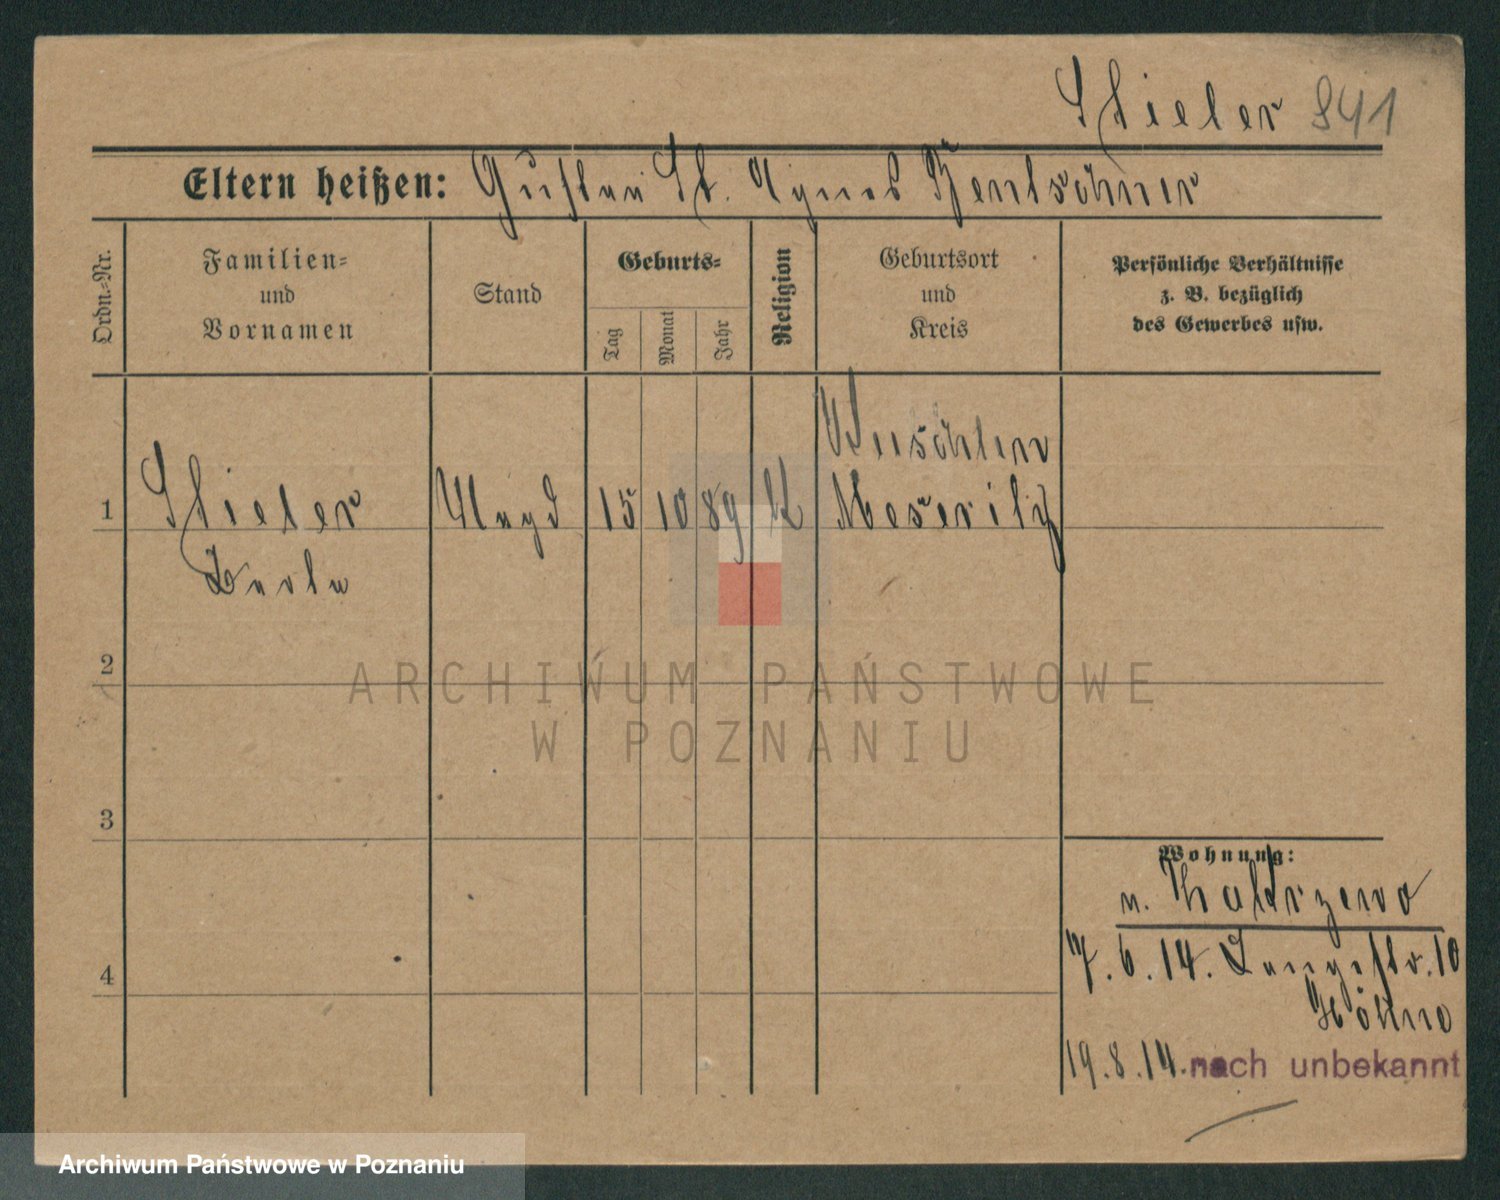 Stieler 841
Eltern heißen: Gustav St. Agnes Rentschner
Ordn.-Nr.
Familien-
und
Vornamen
Stand
Geburts-
Tag
Monat
Jahr
Religion
Geburtsort
und
Kreis
Persönliche Verhältnisse
z. B. bezüglich
des Gewerbes usw.
1
Stieler
Magd
15
10
89
K
Meseritz
2
ARCHIWUM PAŃSTWOWE
W POZNANIU
3
Wohnung:
4
7.6.14. Langestr. 10
19.8.14. nach unbekannt
Archiwum Państwowe w Poznaniu